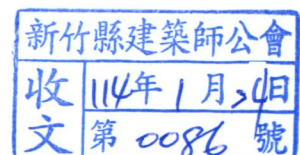 新竹縣建築師公會
收文
114年1月24日
第0086號